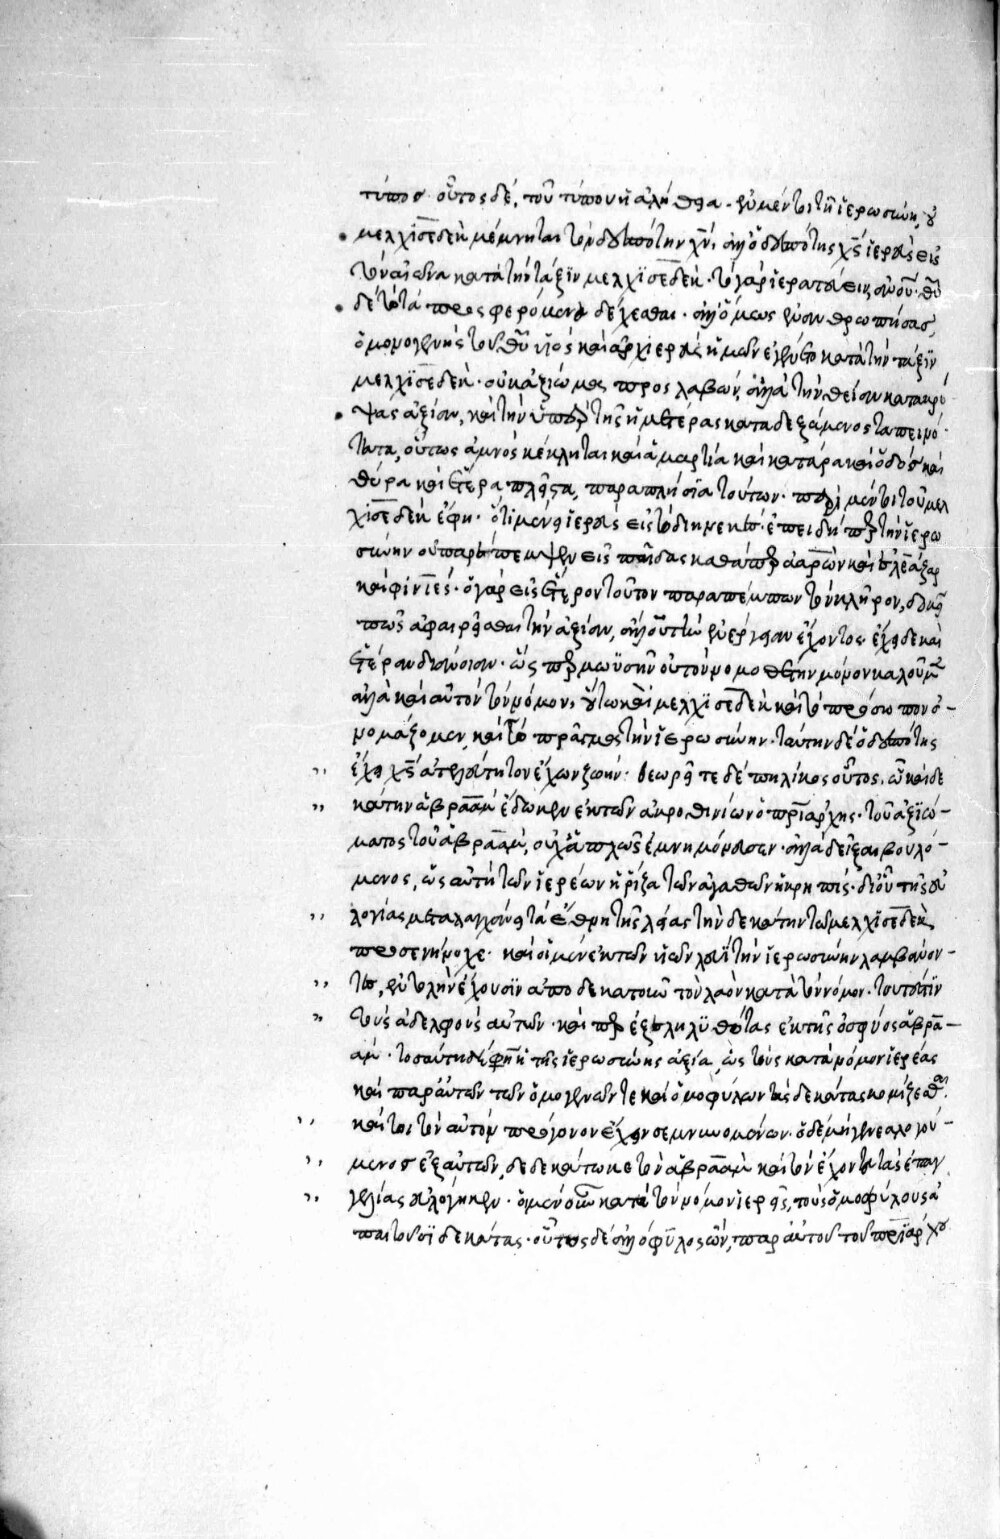 τύπος· οὗτος δέ, τοῦ τύπου ἡ ἀλήθεια. ἐν μέντοι τῇ ἱερωσύνῃ, οὐ
μελχισεδὲκ μέμνηται τὸν δεσπότην χν, ἀλλ' ὁ δεσπότης χς ἱερεὺς εἰς
τὸν αἰῶνα κατὰ τὴν τάξιν μελχισεδέκ. τὸ γὰρ ἱερατεύειν, ανου· θυ
δὲ τὸ τὰ προσφερόμενα δέχεσθαι. ἀλλ' ὅμως ἐνανθρωπήσας,
ὁ μονογενὴς τοῦ θυ υἱός καὶ ἀρχιερεὺς ἡμῶν ἐγένετο κατὰ τὴν τάξιν
μελχισεδέκ· οὐκ ἀξίωμα προσλαβών, ἀλλὰ τὴν θείαν κατακρύ
ψας ἀξίαν, καὶ τὴν ὑπὲρ τῆς ἡμετέρας καταδεξάμενος ταπεινό
τητα, οὕτως ἀμνὸς κέκληται καὶ ἁμαρτία καὶ κατάρα καὶ ὁδὸς καὶ
θύρα καὶ ἕτερα πλεῖστα, παραπλήσια τούτων. περὶ μέντοι τοῦ μελ
χισεδὲκ ἔφη· ὅτι μένει ἱερεὺς εἰς τὸ διηνεκές· ἐπειδήπερ τὴν ἱερω
σύνην οὐ παρέπεμψεν εἰς παῖδας καθάπερ ἀαρὼν καὶ ἐλεάζαρ
καὶ φινεές· ὁ γὰρ εἰς ἕτερον τοῦτον παραπέμπων τὸν κλῆρον, δοκεῖ
πως ἀφαιρεῖσθαι τὴν ἀξίαν, ἄλλου τὴν ἐνέργειαν ἔχοντος. ἔχει δὲ καὶ
ἑτέραν διάνοιαν· ὥσπερ μωϋσῆν οὐ τὸν νομοθέτην μόνον καλοῦμεν
ἀλλὰ καὶ αὐτὸν τὸν νόμον, οὕτω καὶ μελχισεδὲκ καὶ τὸ πρόσωπον ὀ-
νομάζομεν, καὶ τὸ πρᾶγμα τὴν ἱερωσύνην. ταύτην δὲ ὁ δεσπότης
ἔχει χς ἀτελεύτητον ἔχων ζωήν: θεωρεῖτε δὲ πηλίκος οὗτος, ὧ καὶ δε
κάτην ἀβραὰμ ἔδωκεν ἐκ τῶν ἀκροθινίων ὁ πριάρχης. τοῦ ἀξιώ-
ματος τοῦ ἀβραάμ, οὐχ ἁπλῶς ἐμνημόνευσεν. ἀλλὰ δεῖξαι βουλό-
μενος, ὡς αὐτὴ τῶν ἱερέων ἡ ῥίζα τῶν ἀγαθῶν ἡ κρηπίς. δι' οὗ τῆς εὐ
λογίας μεταλαγχάνει τὰ ἔθνη τῆς λείας τὴν δεκάτην τῶ μελχισεδὲκ
προσενήνοχε. καὶ οἱ μὲν ἐκ τῶν υἱῶν λευῒ τὴν ἱερωσύνην λαμβάνον-
τες, ἐντολὴν ἔχουσιν ἀποδεκατοῦν τὸν λαὸν κατὰ τὸν νόμον. τουτέστιν
τοὺς ἀδελφοὺς αὐτῶν. καίπερ ἐξεληλυθότας ἐκ τῆς ὀσφύος ἀβρα-
άμ. τοσαύτη δέ, φησὶ τῆς ἱερωσύνης ἀξία, ὡς τοὺς κατὰ νόμον ἱερέας
καὶ παρ' αὐτῶν τῶν ὁμογενῶν τε καὶ ὁμοφύλων τὰς δεκάτας κομίζεσθαι.
καίτοι τὸν αὐτὸν πρόγονον ἔχειν σεμνυνομένων. ὁ δὲ μὴ γενεαλογού-
μενος ἐξ αὐτῶν, δεδεκάτωκε τὸν ἀβραὰμ καὶ τὸν ἔχοντα τὰς ἐπαγ
γελίας εὐλόγηκεν. οἱ μὲν οὖν κατὰ τὸν νόμον ἱερεῖς, τοὺς ὁμοφύλους ἀ
παιτοῦσι δεκάτας. οὗτος δὲ ἀλλόφυλος ὤν, παρ' αὐτοῦ τοῦ πριάρχου